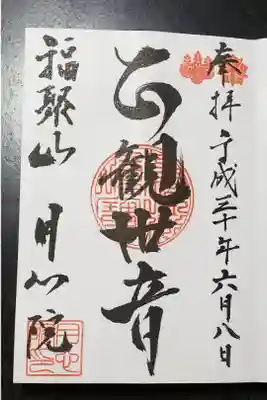 奉拝 平成三十年六月八日
正観世音
福聚山 月心院